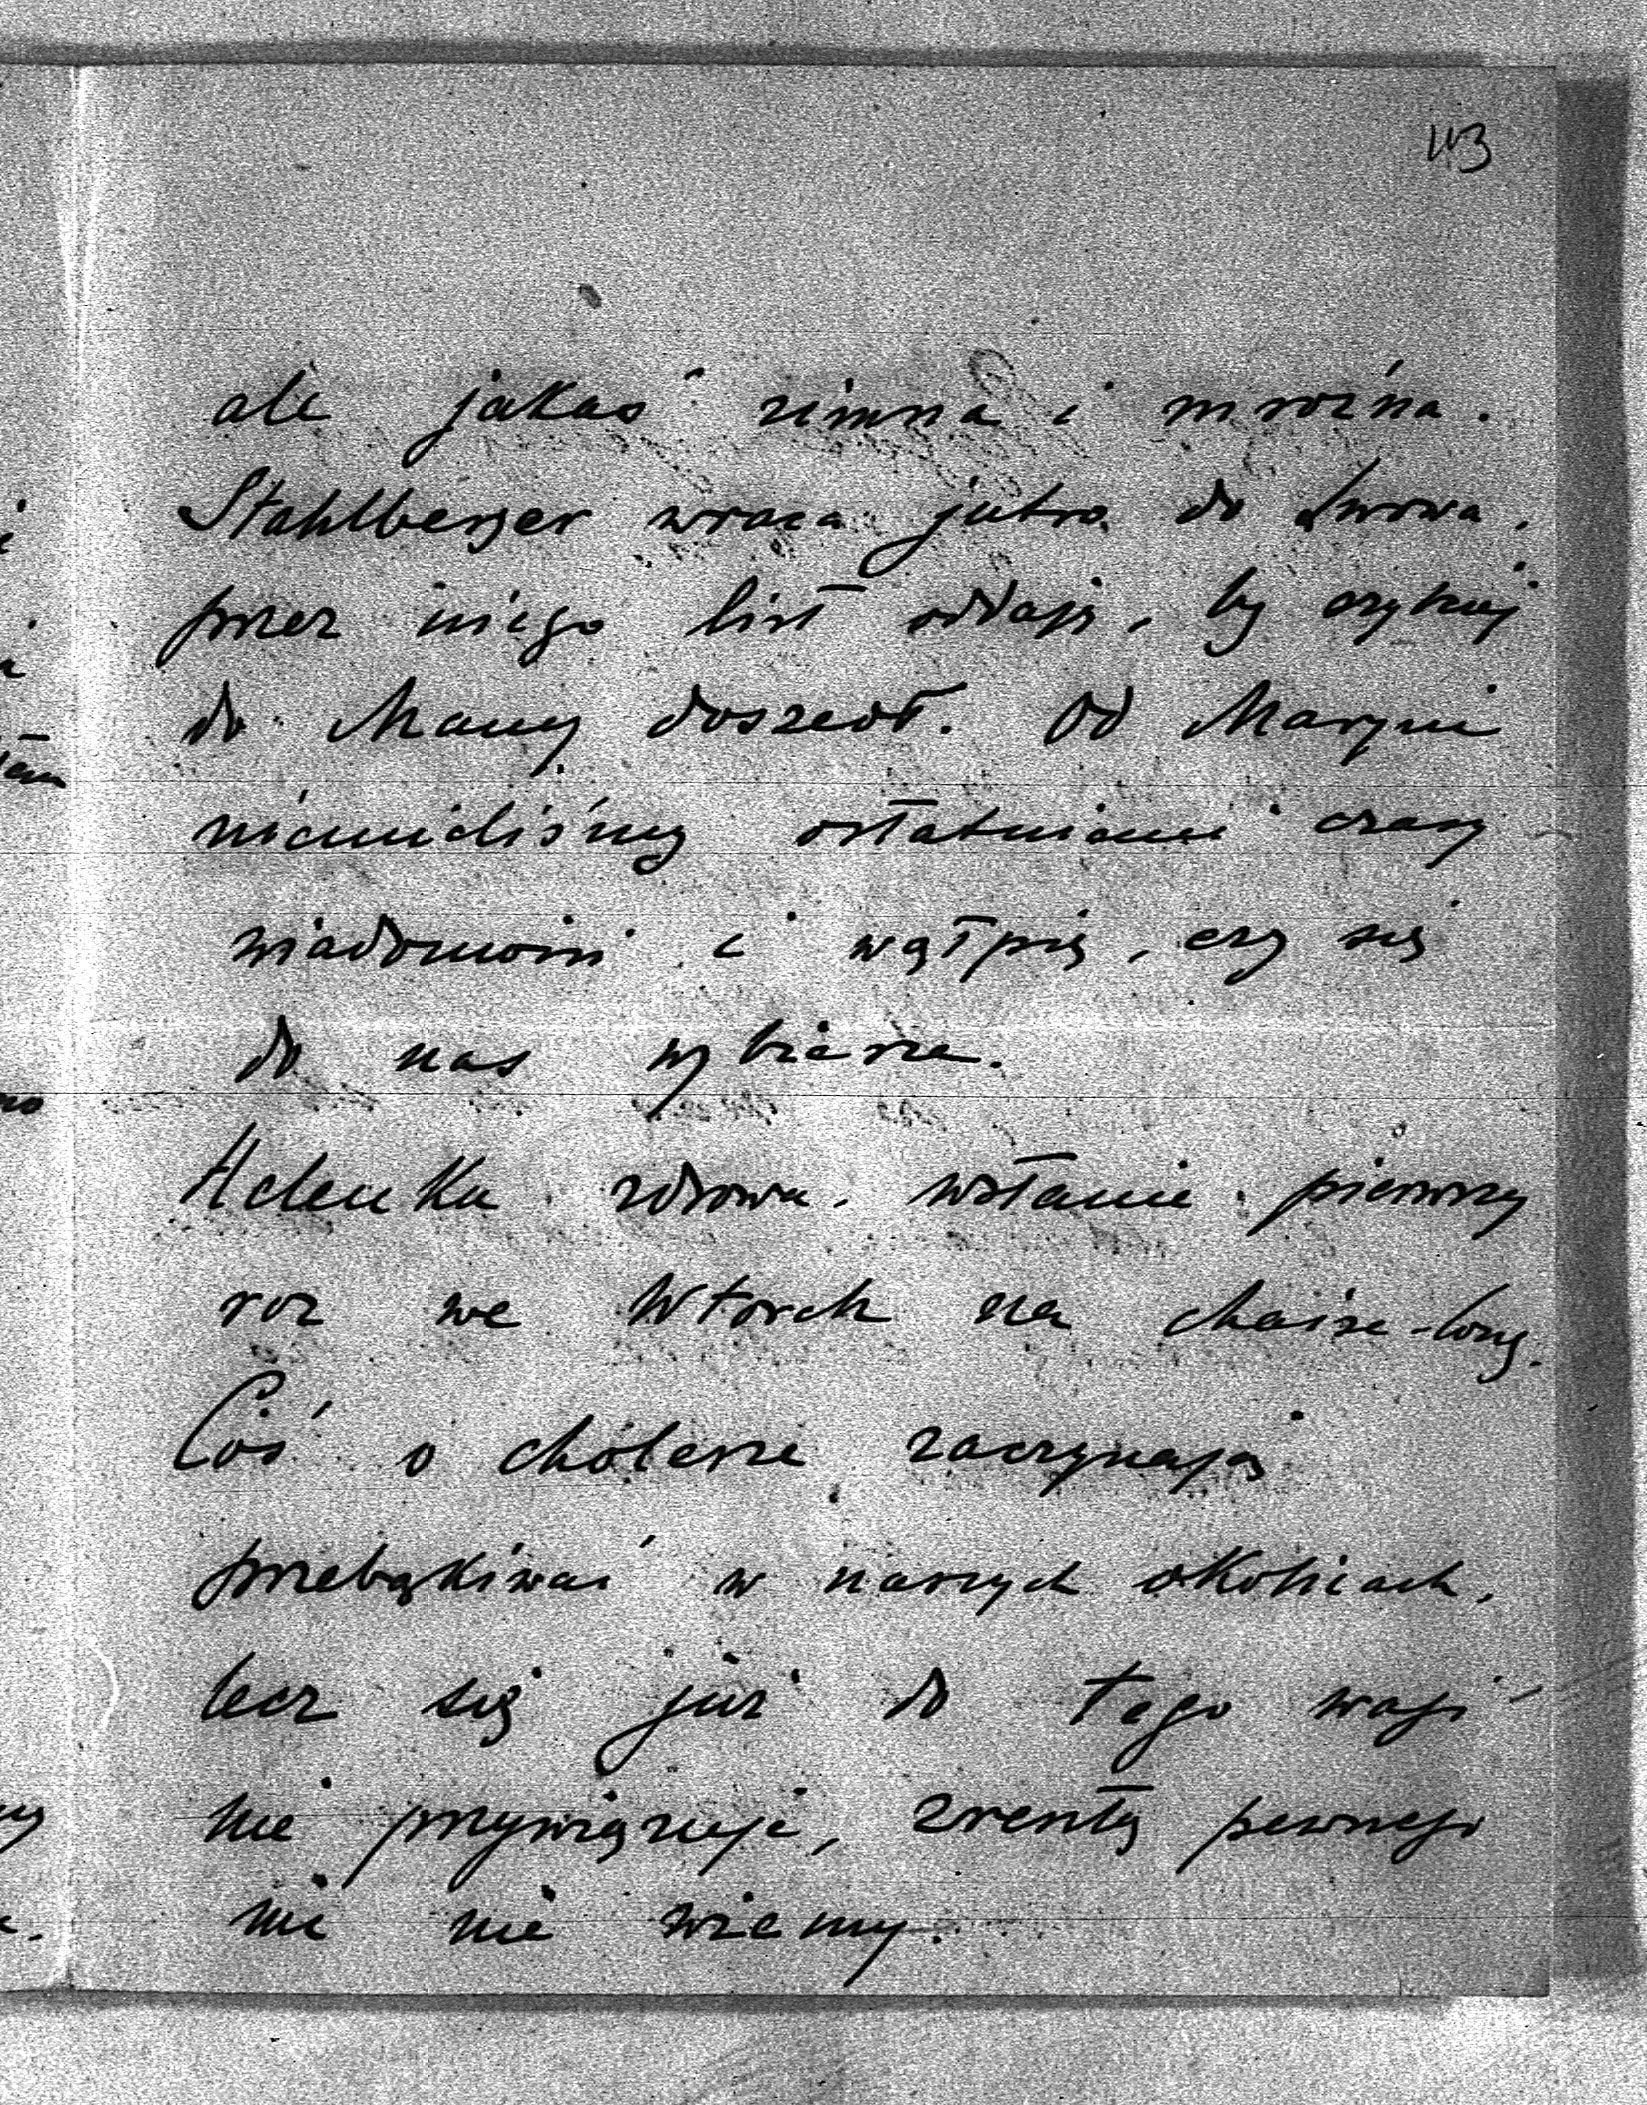 113
ale jakaś zimna i mroźna.
Stahlberger wraca jutro do Lwowa,
przez niego list oddaję, by czytaj
do Mamy doszedł. Od Maryni
niemieliśmy ostatniemi czasy
wiadomości i wątpię, czy się
do nas wybierze.
Helenka zdrowa. wstanie pierwszy
raz we Wtorek na chaise-long.
Coś o cholerze zaczynają
przebąkiwać w naszych okolicach,
lecz się już do tego wagi
nie przywiązuje, zresztą pewnego
nic nie wiemy.